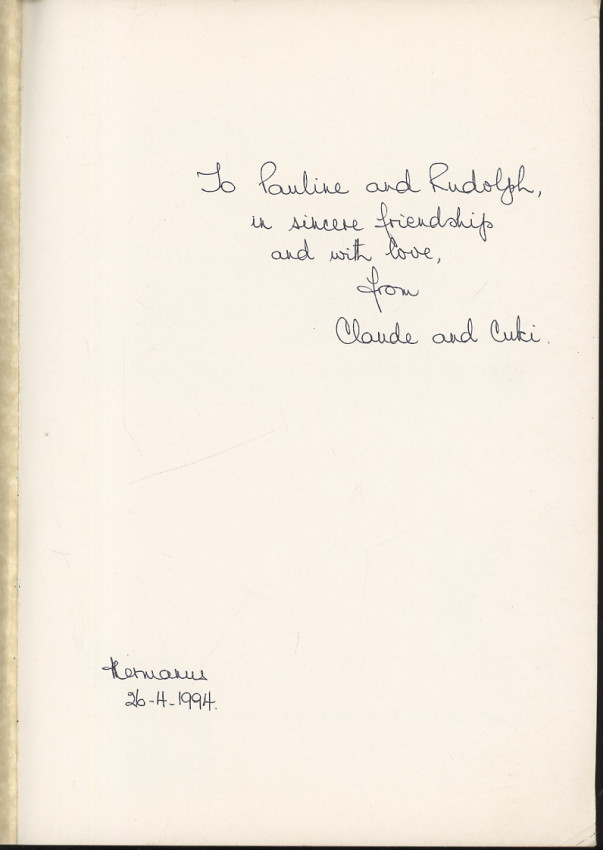 To Pauline and Rudolph,
in sincere friendship
and with love,
from
Claude and Cuki.
Hermanus
26-4-1994.